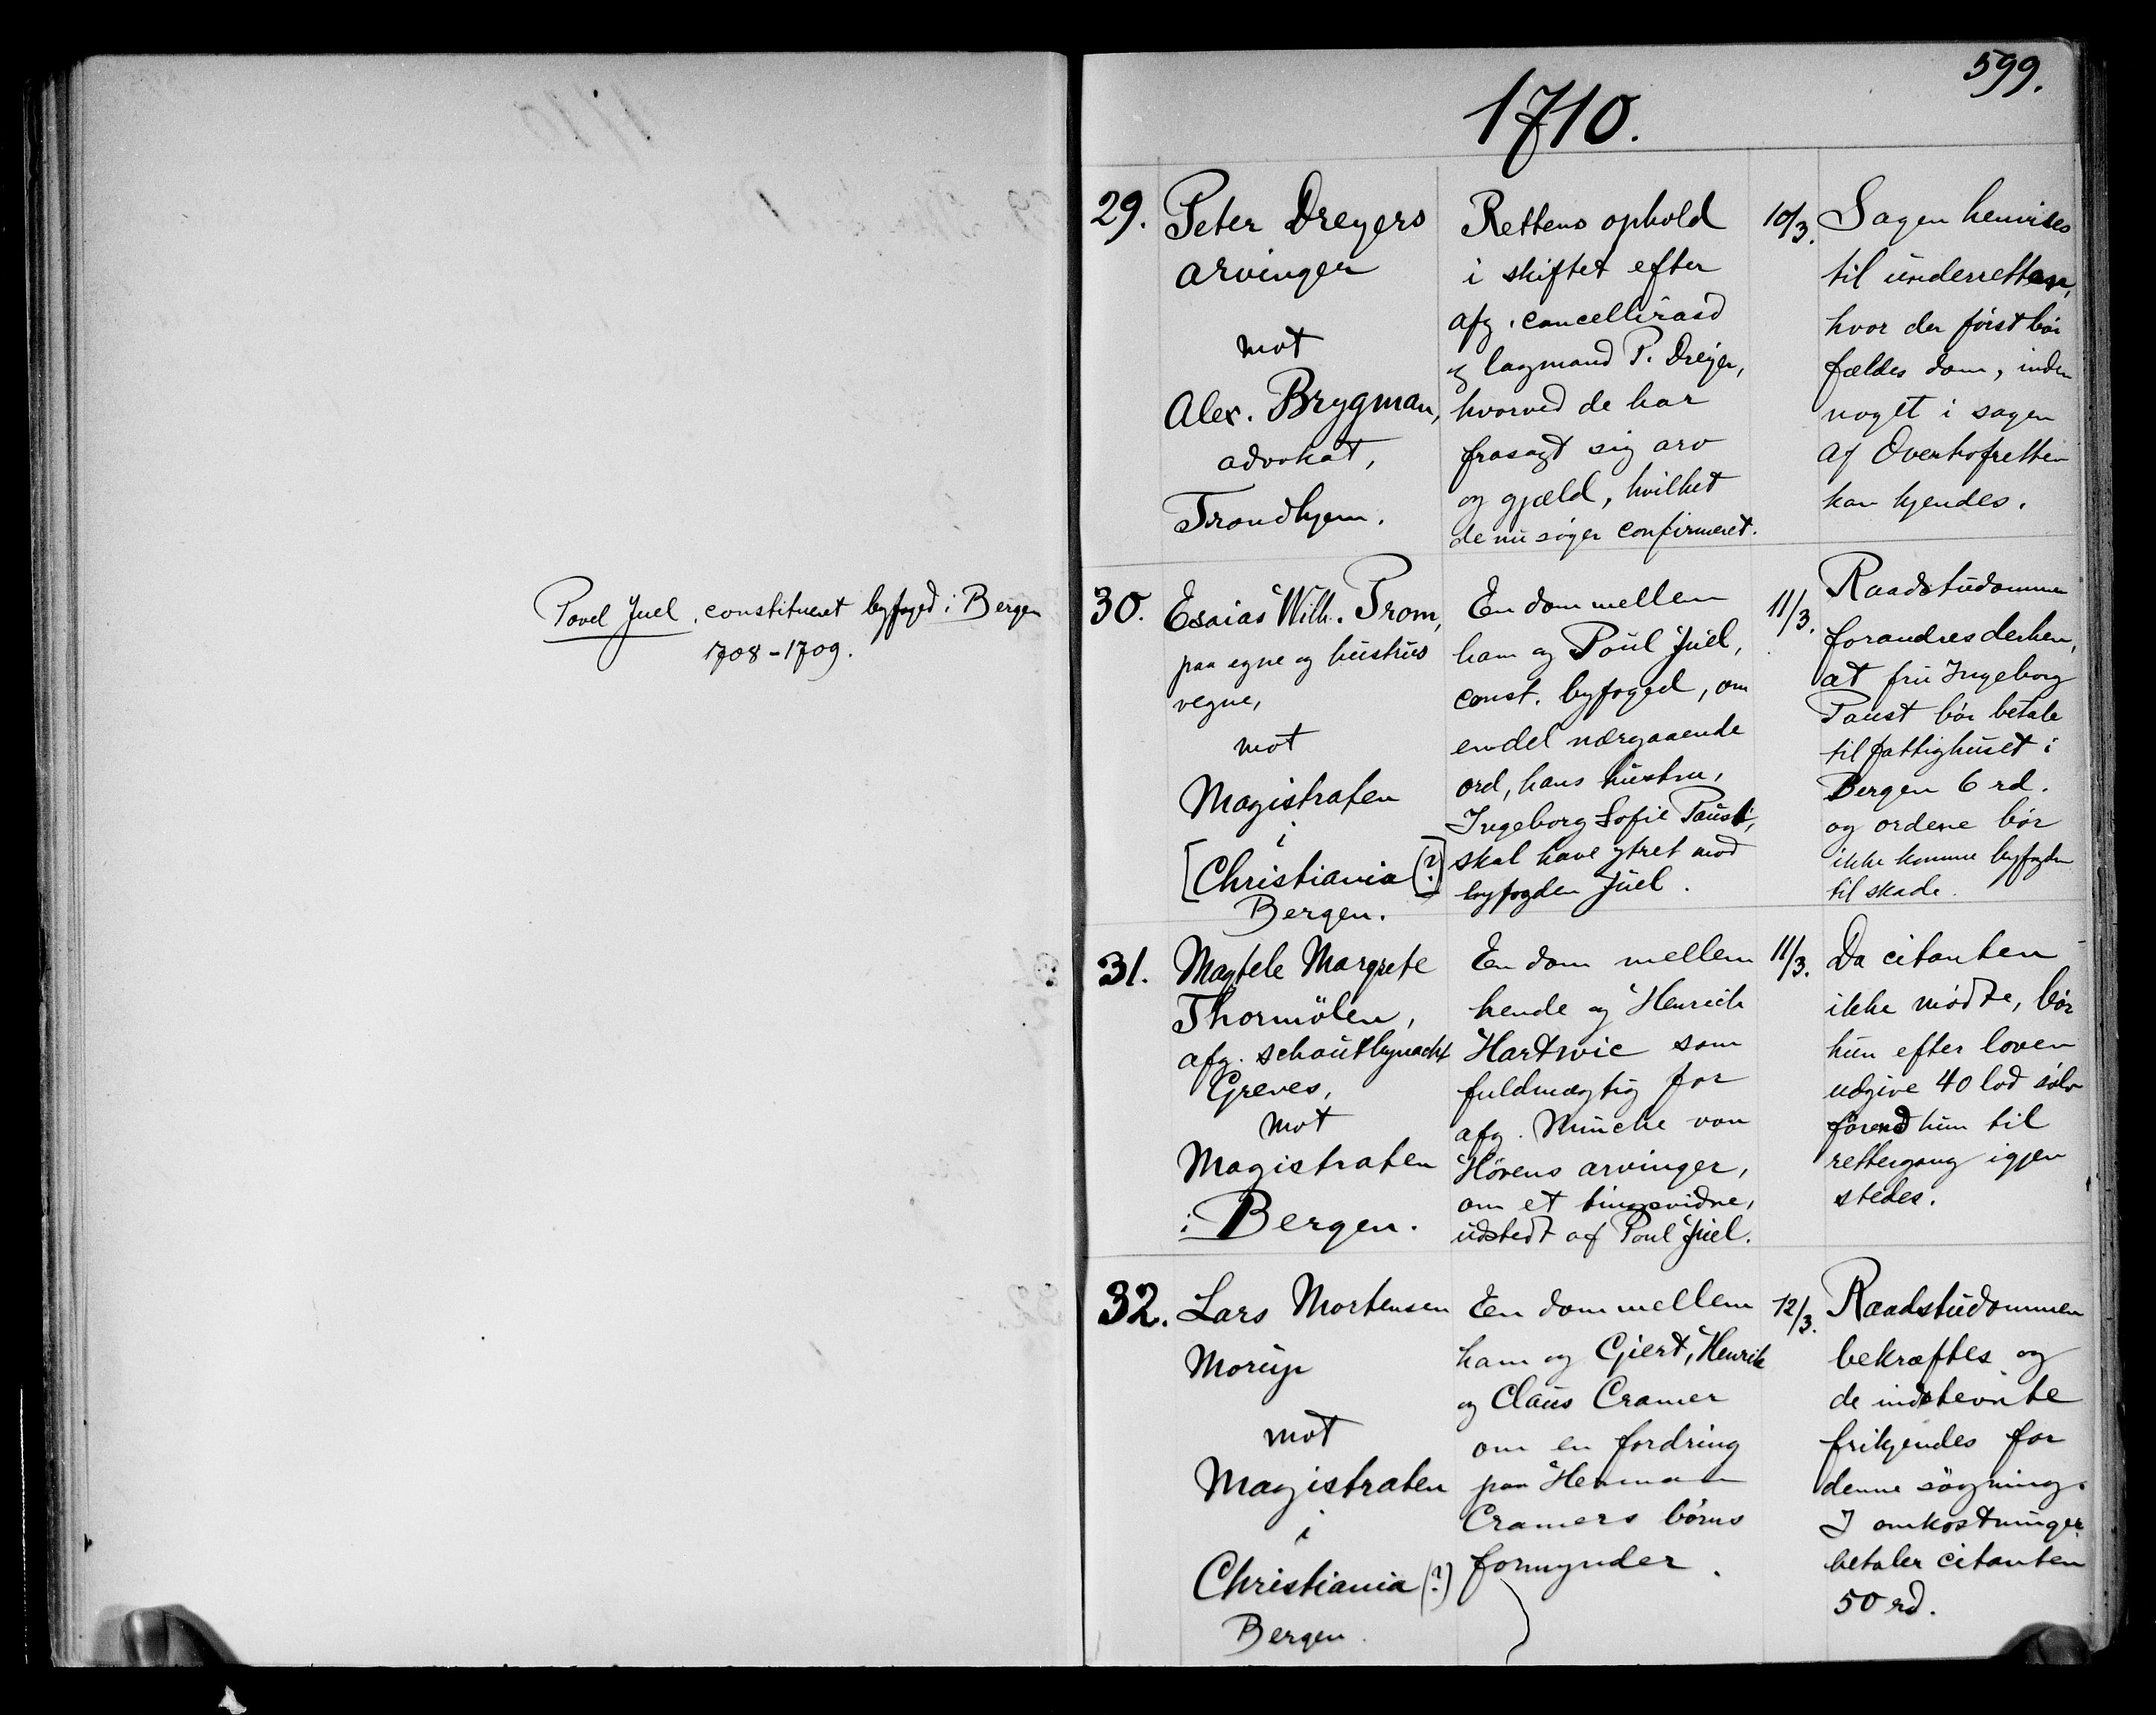 Povel Juel, constitueret byfoged i Bergen
1708-1709.
599.
1710.
29.
Peter Dreyers
arvinger
mot
Alex. Brygman,
advokat,
Trondhjem.
Rettens ophold
i skiftet efter
afg. cancelliraad
og lagmand P. Dreyer,
hvorved de har
frasagt sig arv
og gjæld, hvilket
de nu søger confirmeret.
10/3.
Sagen henvises
til underretten,
hvor der først bør
fældes dom, inden
noget i sagen
af Overhofretten
kan kjendes.
30.
Esaias Wilh. From,
paa egne og hustrus
vegne,
mot
Magistraten
i
[Christiania (?)]
Bergen.
En dom mellem
ham og Poul Juel,
const. byfoged, om
endel nærgaaende
ord, hans hustru,
Ingeborg Sofie Paust,
skal have ytret mod
byfogden Juel.
11/3.
Raadstudommen
forandres derhen,
at fru Ingeborg
Paust bør betale
til fattighuset i
Bergen 6 rd.
og ordene bør
ikke komme byfogden
til skade.
31.
Magtele Margrete
Thormølen,
afg. schoutbynacht
Greves,
mot
Magistraten
i Bergen.
En dom mellem
hende og Henrich
Hartwic som
fuldmægtig for
afg. Münche von
Hövens arvinger,
om et tingsvidne,
udstedt af Poul Juel.
11/3.
Da citanten
ikke mødte, bør
hun efter loven
udgive 40 lod sølv
førend hun til
rettergang igjen
stedes.
32.
Lars Mortensen
Morup
mot
Magistraten
i
Christiania (?)
Bergen.
En dom mellem
ham og Gjert, Henrik
og Claus Cramer
om en fordring
paa Herman
Cramers børns
formynder.
12/3.
Raadstudommen
bekræftes og
de indstevnte
frikjendes for
denne søgning.
I omkostninger
betaler citanten
50 rd.